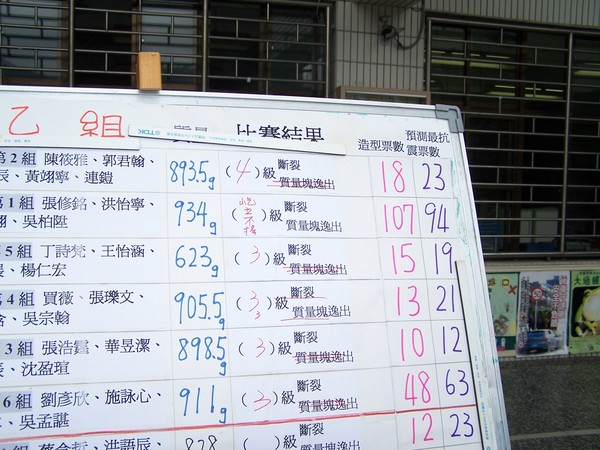 乙 組
TDK
比賽結果
造型票數
預測最抗
震票數
第 2 組 陳筱雅、郭君翰、
辰、黃翊寧、連鎧
893.5g
( 4 ) 級 斷裂
質量塊逸出
18
23
第 1 組 張修銘、洪怡寧、
翔、吳柏陞
934g
( 屹立不搖 ) 級 斷裂
質量塊逸出
107
94
5 組 丁詩梵、王怡涵、
楊仁宏
623g
( 3 ) 級 斷裂
質量塊逸出
15
19
4 組 賈薇、張瓅文、
吳宗翰
905.5g
( 3 3 ) 級 斷裂
質量塊逸出
13
21
3 組 張浩鑑、華昱潔、
沈盈瑄
898.5g
( 3 ) 級 斷裂
質量塊逸出
10
12
6 組 劉彥欣、施詠心、
吳孟諶
911g
( 3 ) 級 斷裂
質量塊逸出
48
63
洪語辰、
828
( ) 級 斷裂
12
23